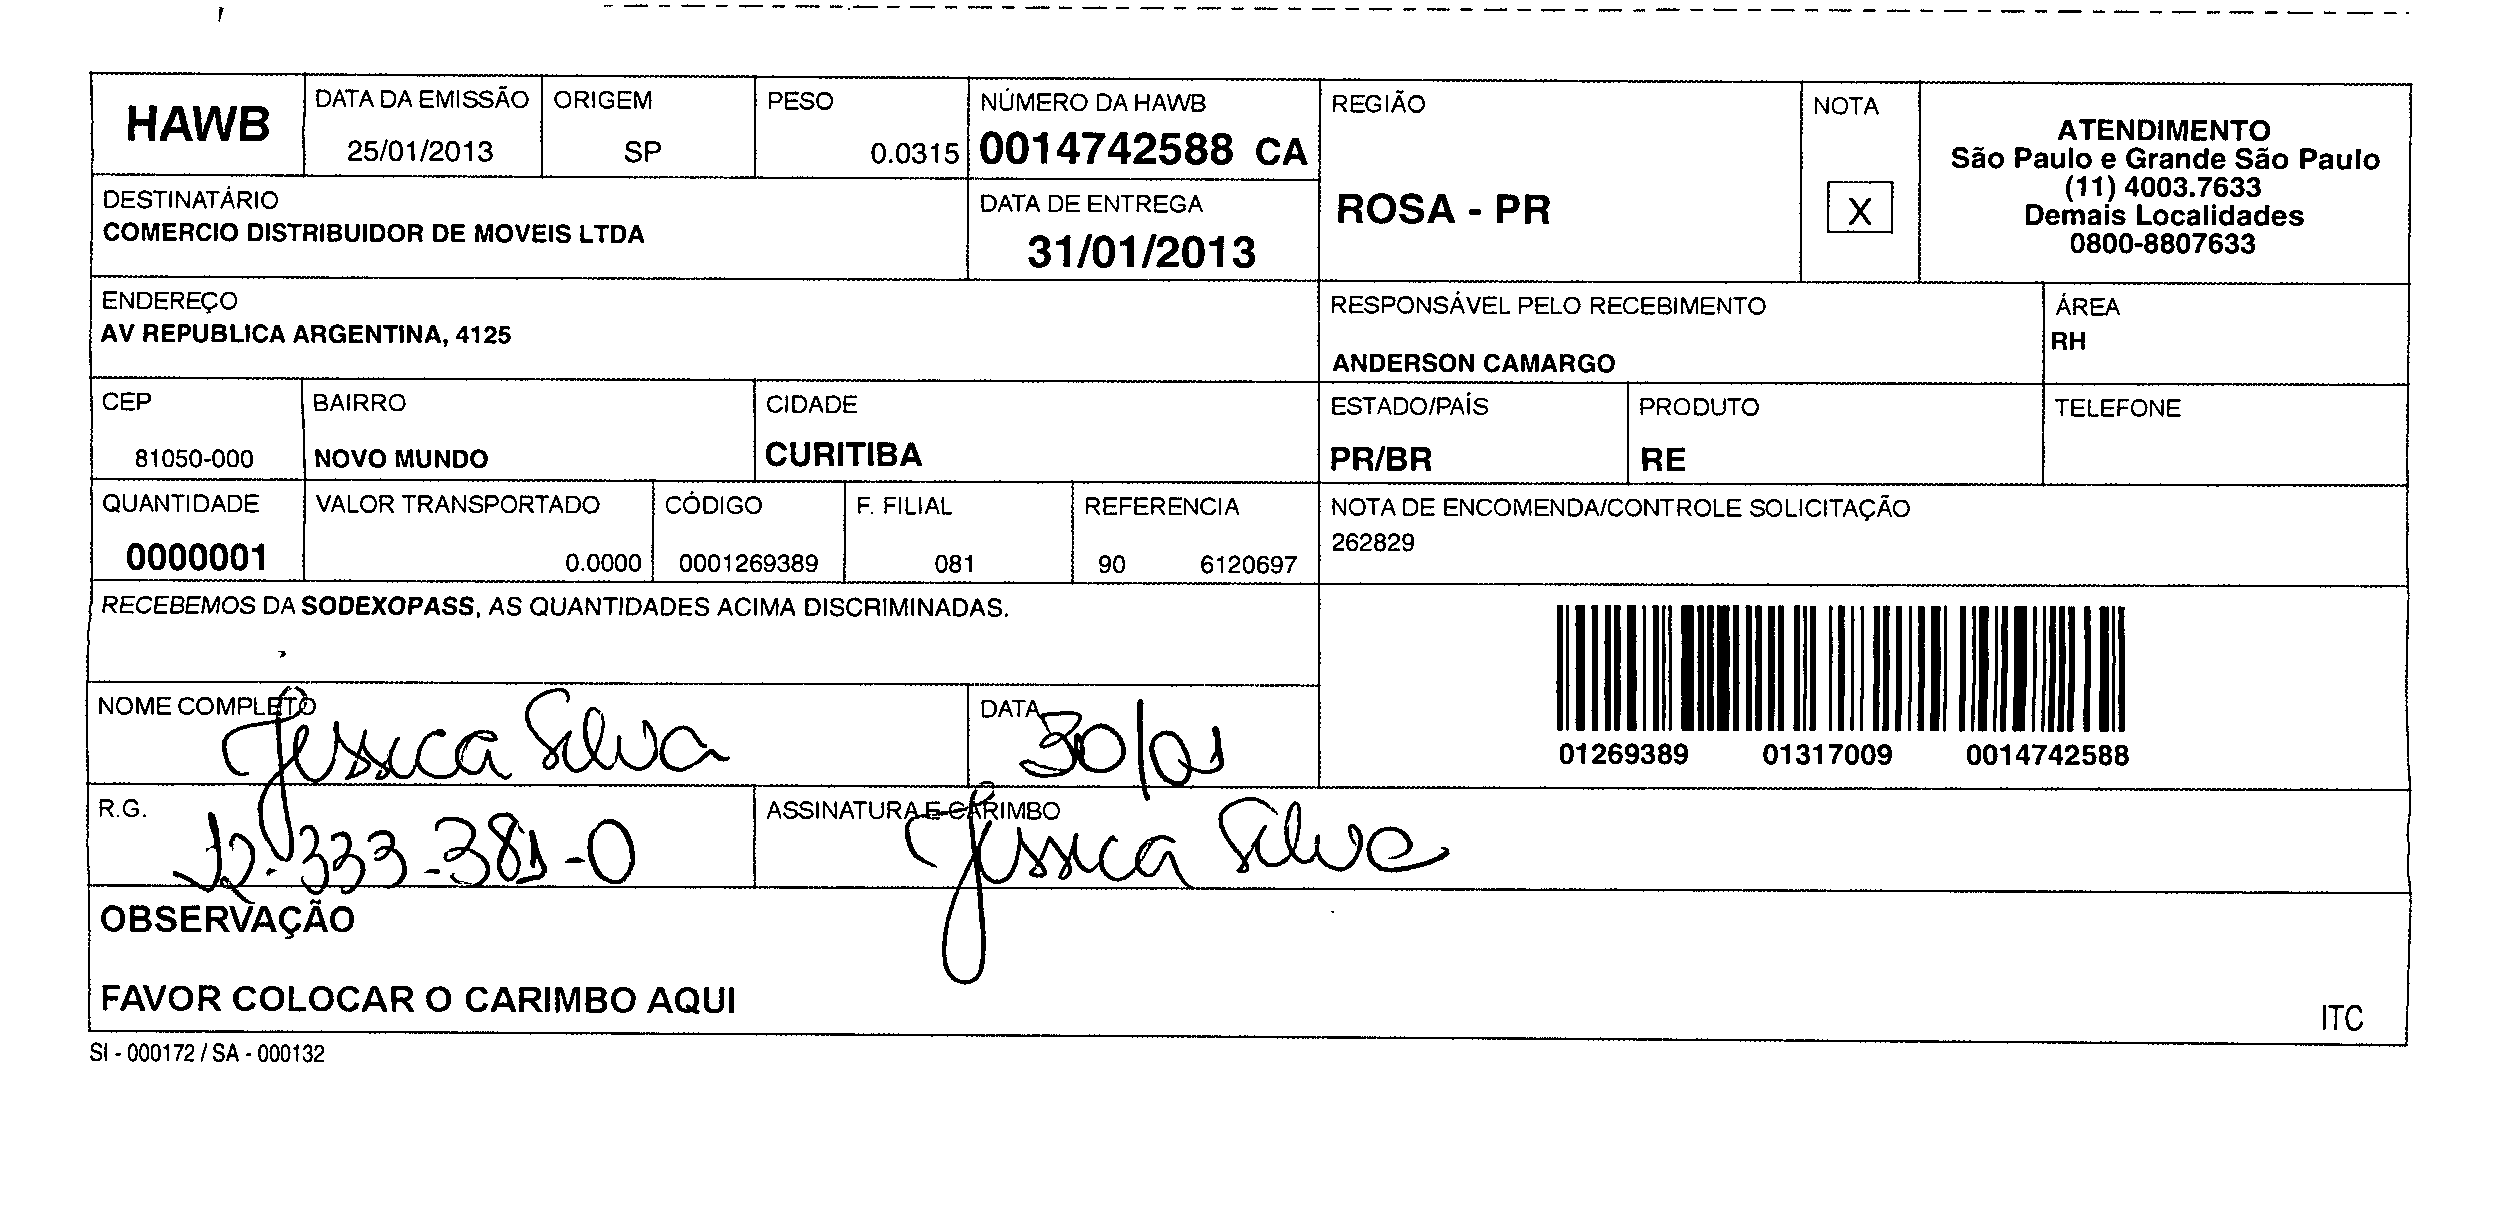 HAWB
DATA DA EMISSÃO
25/01/2013
ORIGEM
SP
PESO
0.0315
NÚMERO DA HAWB
0014742588 CA
REGIÃO
ROSA - PR
NOTA
X
ATENDIMENTO
São Paulo e Grande São Paulo
(11) 4003.7633
Demais Localidades
0800-8807633
DESTINATÁRIO
COMERCIO DISTRIBUIDOR DE MOVEIS LTDA
DATA DE ENTREGA
31/01/2013
ENDEREÇO
AV REPUBLICA ARGENTINA, 4125
RESPONSÁVEL PELO RECEBIMENTO
ANDERSON CAMARGO
ÁREA
RH
CEP
81050-000
BAIRRO
NOVO MUNDO
CIDADE
CURITIBA
ESTADO/PAÍS
PR/BR
PRODUTO
RE
TELEFONE
QUANTIDADE
0000001
VALOR TRANSPORTADO
0.0000
CÓDIGO
0001269389
F. FILIAL
081
REFERENCIA
90 6120697
NOTA DE ENCOMENDA/CONTROLE SOLICITAÇÃO
262829
RECEBEMOS DA SODEXOPASS, AS QUANTIDADES ACIMA DISCRIMINADAS.
01269389 01317009 0014742588
NOME COMPLETO
Jessica Silva
DATA
30/01
R.G.
12.333-381-0
ASSINATURA E CARIMBO
Jessica Silva
OBSERVAÇÃO
FAVOR COLOCAR O CARIMBO AQUI
ITC
SI - 000172 / SA - 000132